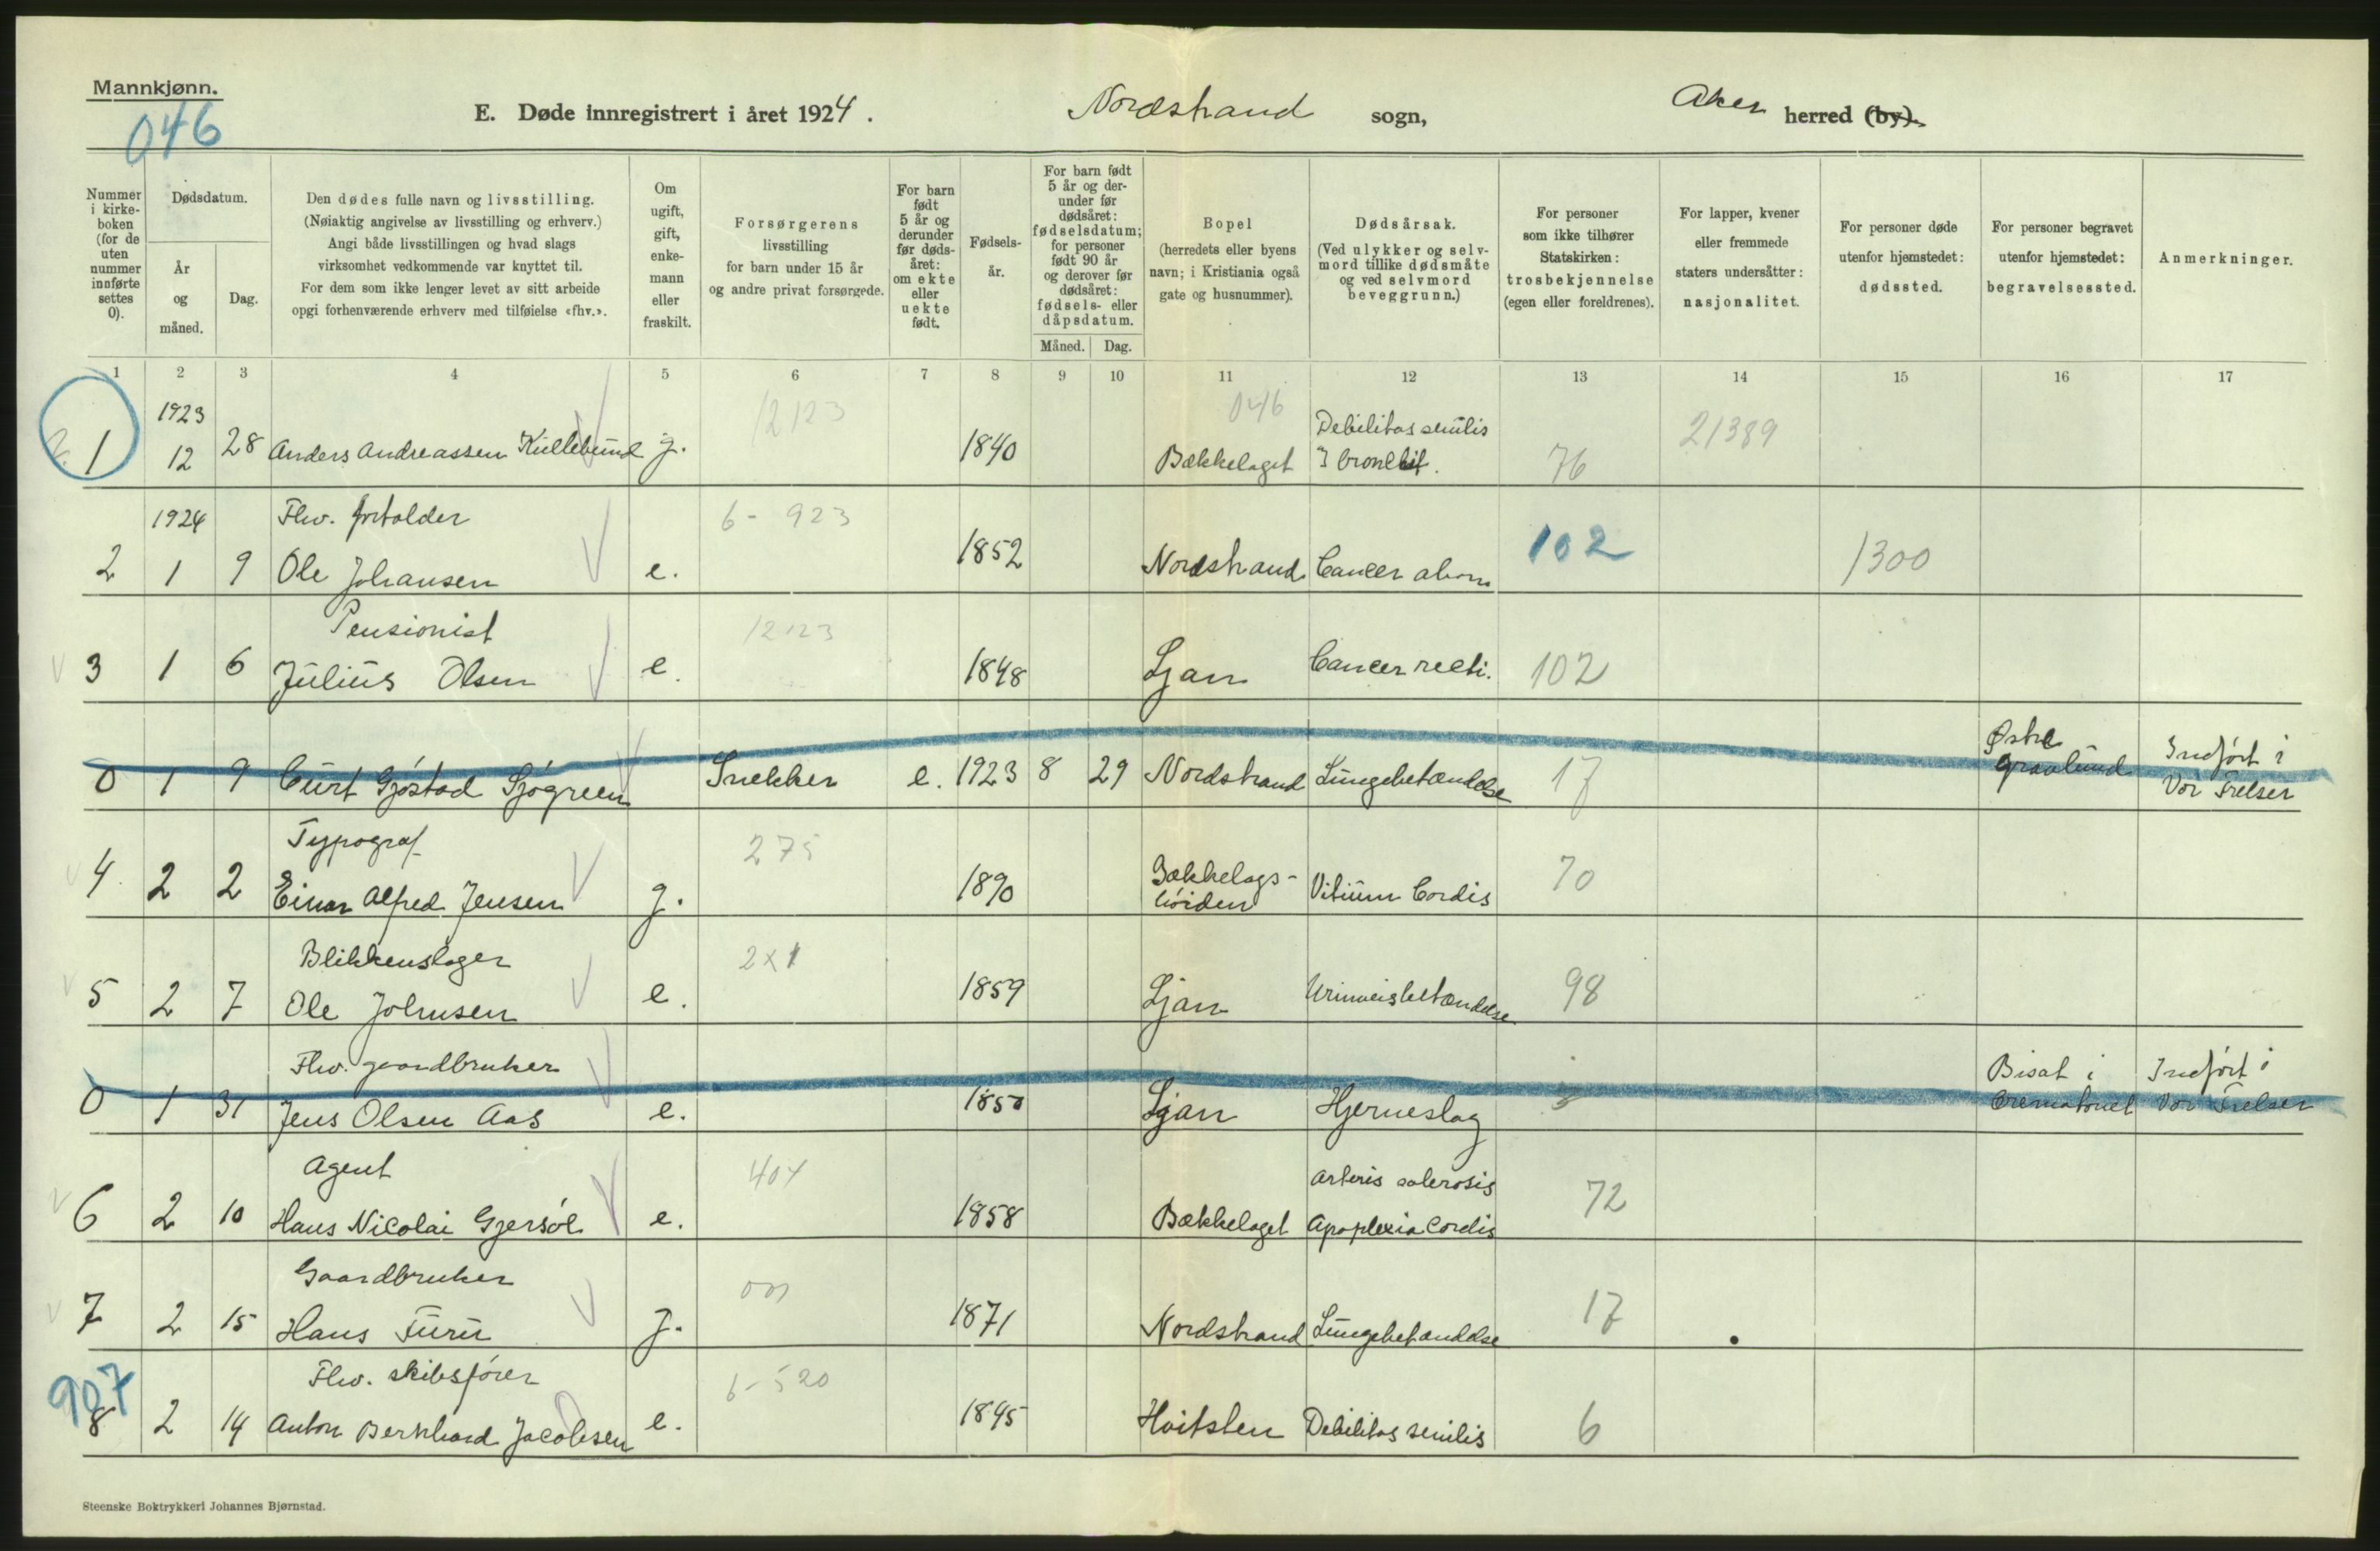 Mannkjønn.
046
E. Døde innregistrert i året 1924.
Nordstrand sogn,
Aker herred (by).
Nummer i kirke-boken (for de uten nummer innførte settes 0).
Dødsdatum.
År og måned.
Dag.
Den dødes fulle navn og livsstilling.
(Nøiaktig angivelse av livsstilling og erhverv.)
Angi både livsstillingen og hvad slags
virksomhet vedkommende var knyttet til.
For dem som ikke lenger levet av sitt arbeide
opgi forhenværende erhverv med tilføielse «fhv.».
Om ugift, gift, enke-mann eller fraskilt.
Forsørgerens
livsstilling
for barn under 15 år
og andre privat forsørgede.
For barn født 5 år og derunder før døds-året: om ekte eller uekte født.
Fødsels-år.
For barn født 5 år og der-under før dødsåret: fødselsdatum; for personer født 90 år og derover før dødsåret: fødsels- eller dåpsdatum.
Måned. Dag.
Bopel
(herredets eller byens
navn; i Kristiania også
gate og husnummer).
Dødsårsak.
(Ved ulykker og selv-
mord tillike dødsmåte
og ved selvmord
beveggrunn.)
For personer
som ikke tilhører
Statskirken:
trosbekjennelse
(egen eller foreldrenes).
For lapper, kvener
eller fremmede
staters undersåtter:
nasjonalitet.
For personer døde
utenfor hjemstedet:
dødssted.
For personer begravet
utenfor hjemstedet:
begravelsessted.
Anmerkninger.
1 2 3 4 5 6 7 8 9 10 11 12 13 14 15 16 17
1923 12123 046 Debilitas senilis 21389
1 12 28 Anders Andreassen Kullebund g. 1840 Bækkelaget 76
1924 Fhv. 6- 923
2 1 9 Ole Johansen e. 1852 Nordstrand Cancer abom 102 1300
Pensionist 12123
3 1 6 Julius Olsen e. 1848 Ljan Cancer recti. 102
Østre Indført i
0 1 9 Curt Gjøstad Sjøgreen Snekker e. 1923 8 29 Nordstrand Lungebetændelse 17 Gravlund Vor Frelser
Typograf 275
4 2 2 Einar Alfred Jensen g. 1890 Bækkelags-høiden Vitium Cordis 70
Blikkenslager 2x1
5 2 7 Ole Johnsen e. 1859 Ljan Urinveisbetændelse 98
Fhv. gaardbruker Bisat i Indført i
0 1 31 Jens Olsen Aas e. 1850 Ljan Hjerneslag Crematoriet Vor Frelser
Agent 404 Arteris sclerosis
6 2 10 Hans Nicolai Gjersøe e. 1858 Bækkelaget Apoplexia Cordis 72
Gaardbruker
7 2 15 Hans Furu g. 1871 Nordstrand Lungebetændelse 17
907 Fhv. skibsfører 6-520
8 2 14 Anton Bernhard Jacobsen e. 1845 Hvitsten Debilitas senilis 6
Steenske Boktrykkeri Johannes Bjørnstad.